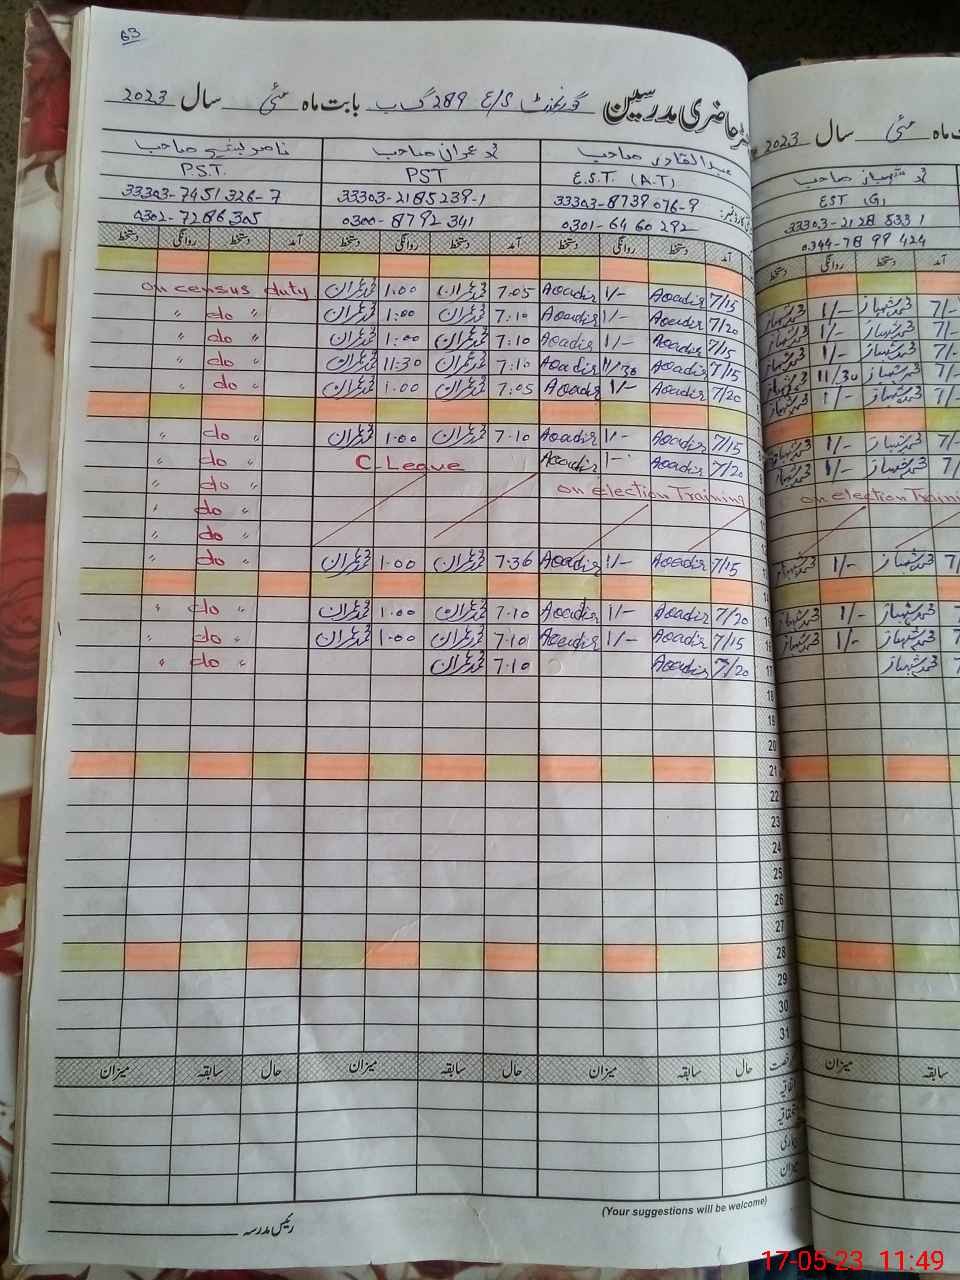 63
حاضری مدرسین گورنمنٹ E/S 289 گ ب بابت ماہ مئی سال 2023
ماہ مئی سال 2023
عبدالقادر صاحب محمد عمران صاحب ناصر صاحب
محمد شہباز صاحب
E.S.T. (A.T) PST P.S.T.
EST (G)
33303-8739076-9 33303-2185239-1 33303-7451326-7
33303-2128533 1
0301-6460292 0300-8792341 0302-7286305
0344-7899424
آمد دستخط روانگی دستخط آمد دستخط روانگی دستخط آمد دستخط روانگی دستخط
آمد دستخط روانگی دستخط
7/15 Aqadir 1/- Aqadir 7.05 محمد عمران 1.00 محمد عمران on census duty
7/20 Aqadir 1/- Aqadir 7:10 محمد عمران 1:00 محمد عمران " do "
7/15 Aqadir 1/- Aqadir 7:10 محمد عمران 1:00 محمد عمران " do "
7/15 Aqadir 11/30 Aqadir 7:10 محمد عمران 11:30 محمد عمران " do "
7/20 Aqadir 1/- Aqadir 7:05 محمد عمران 1:00 محمد عمران " do "
7/15 Aqadir 1/- Aqadir 7.10 محمد عمران 1.00 محمد عمران " do "
7/20 Aqadir 1- Aqadir C-Leave " do "
on election Training " do "
" do "
" do "
7/15 Aqadir 1/- Aqadir 7.36 محمد عمران 1.00 محمد عمران " do "
7/20 Aqadir 1/- Aqadir 7.10 محمد عمران 1.00 محمد عمران " do "
7/15 Aqadir 1/- Aqadir 7.10 محمد عمران 1.00 محمد عمران " do "
17 7/20 Aqadir 7.10 محمد عمران " do "
7/- محمد شہباز 1/- محمد شہباز
7/- محمد شہباز 1/- محمد شہباز
7/- محمد شہباز 1/- محمد شہباز
7/- محمد شہباز 11/30 محمد شہباز
7/- محمد شہباز 1/- محمد شہباز
7/- محمد شہباز 1/- محمد شہباز
7/- محمد شہباز 1/- محمد شہباز
on election Traini
7/ محمد شہباز 1/- محمد شہباز
محمد شہباز 1/- محمد شہباز
محمد شہباز 1/- محمد شہباز
محمد شہباز
18
19
20
21
22
23
24
25
26
27
28
29
30
31
رخصت حال سابقہ میزان حال سابقہ میزان حال سابقہ میزان
سابقہ میزان
اتفاقیہ
میزان
(Your suggestions will be welcome)
رئیس مدرسہ
17-05-23 11:49